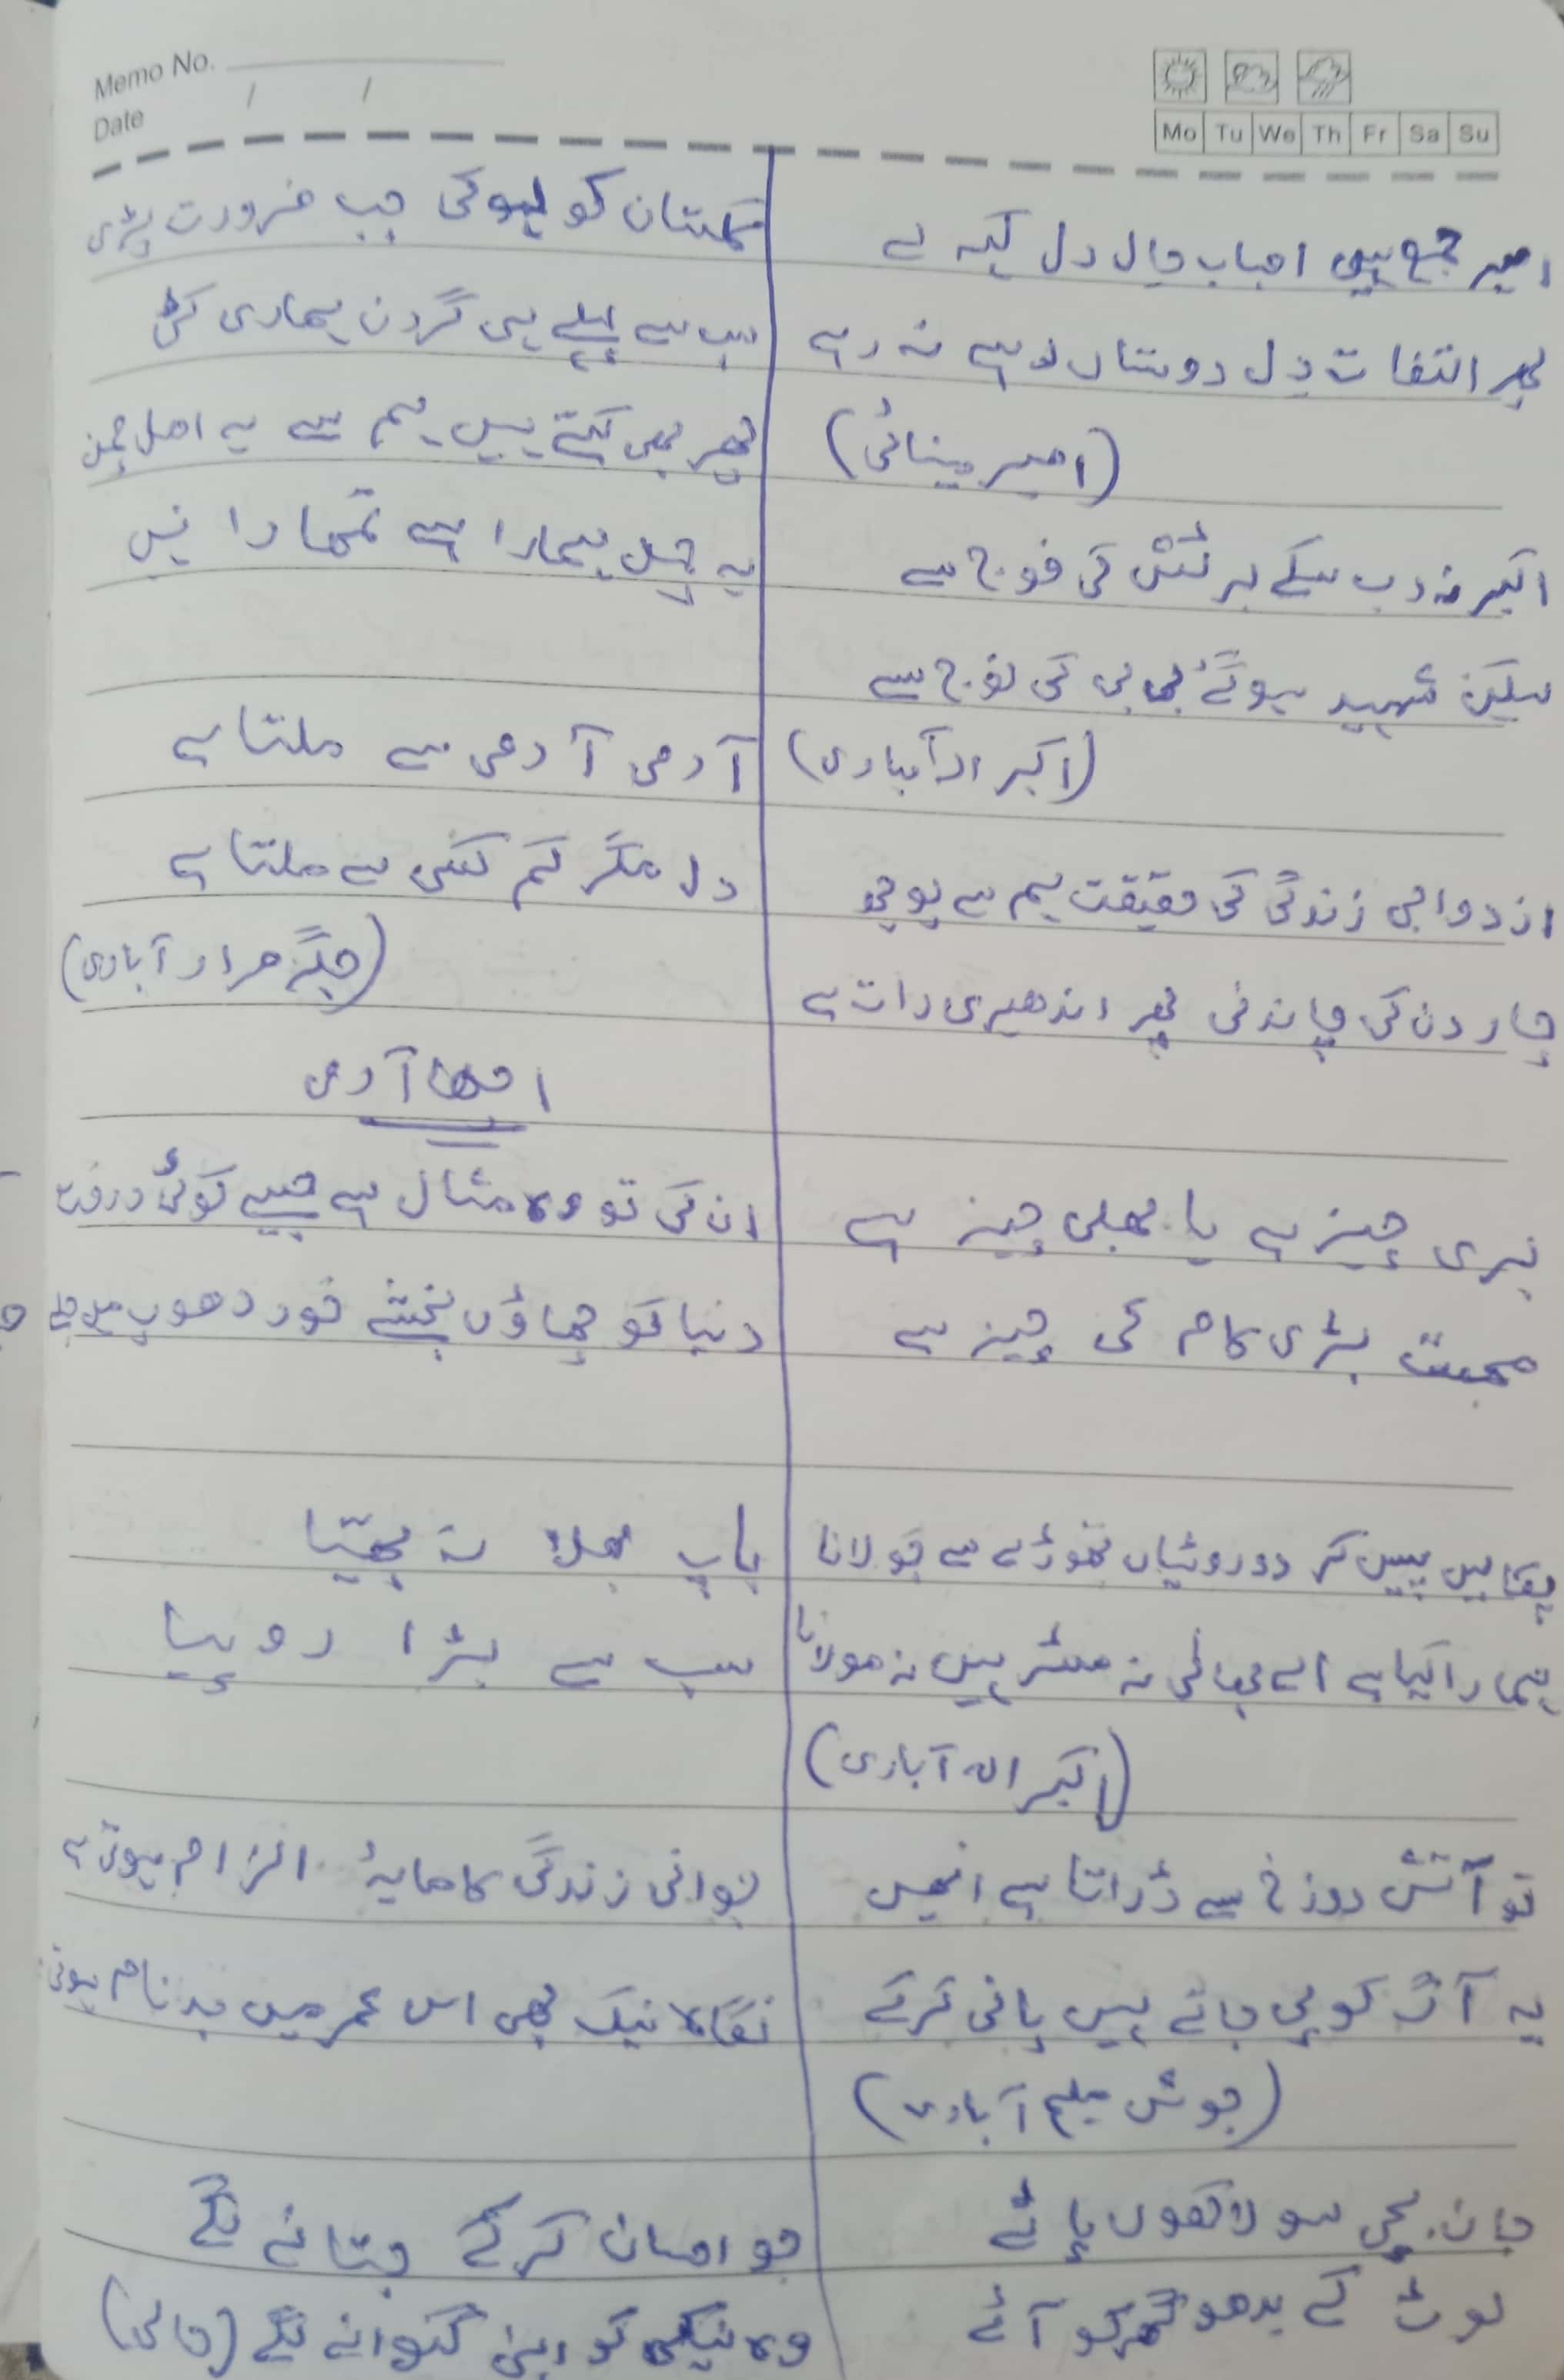 Memo No.
Date / /
Mo Tu We Th Fr Sa Su
امیر جمع ہیں احباب حال دل کہہ لے
پھر التفات دل دوستاں رہے نہ رہے
(امیر مینائی)
اکبر نہ دب سکے برٹش کی فوج سے
لیکن شہید ہوگئے بی بی کی نوج سے
(اکبر الہ آبادی)
ازدواجی زندگی کی حقیقت ہم سے پوچھو
چار دن کی چاندنی پھر اندھیری رات ہے
بری چیز ہے یا بھلی چیز ہے
محبت بڑی کام کی چیز ہے
پکا لیں پیس کر دو روٹیاں تھوڑے سے جو لانا
ہمارا کیا ہے اے بھائی نہ مسٹر ہیں نہ مولانا
(اکبر الہ آبادی)
تو آتش دوزخ سے ڈراتا ہے انھیں
یہ آگ کو پی جاتے ہیں پانی کرکے
(جوش ملیح آبادی)
جان بچی سو لاکھوں پائے
لوٹ کے بدھو گھر کو آئے
گلستان کو لہو کی جب ضرورت پڑی
سب سے پہلے ہی گردن ہماری کٹی
پھر بھی کہتے ہیں ہم سے یہ اہل چمن
یہ چمن ہمارا ہے تمھارا نہیں
آدمی آدمی سے ملتا ہے
دل مگر کم کسی سے ملتا ہے
(جگر مراد آبادی)
اچھا آدمی
ان کی تو وہ مثال ہے جیسے کوئی درخت
دنیا کو چھاؤں بخشے خود دھوپ میں جلے
باپ بھلا نہ بھیّا
سب سے بڑا روپیا
جوانی زندگی کا مایۂ الزام ہوتی ہے
نگاہ نیک بھی اس عمر میں بدنام ہوتی
جو احسان کرکے جتانے لگے
وہ نیکی کو اپنی گنوانے لگے (حالی)